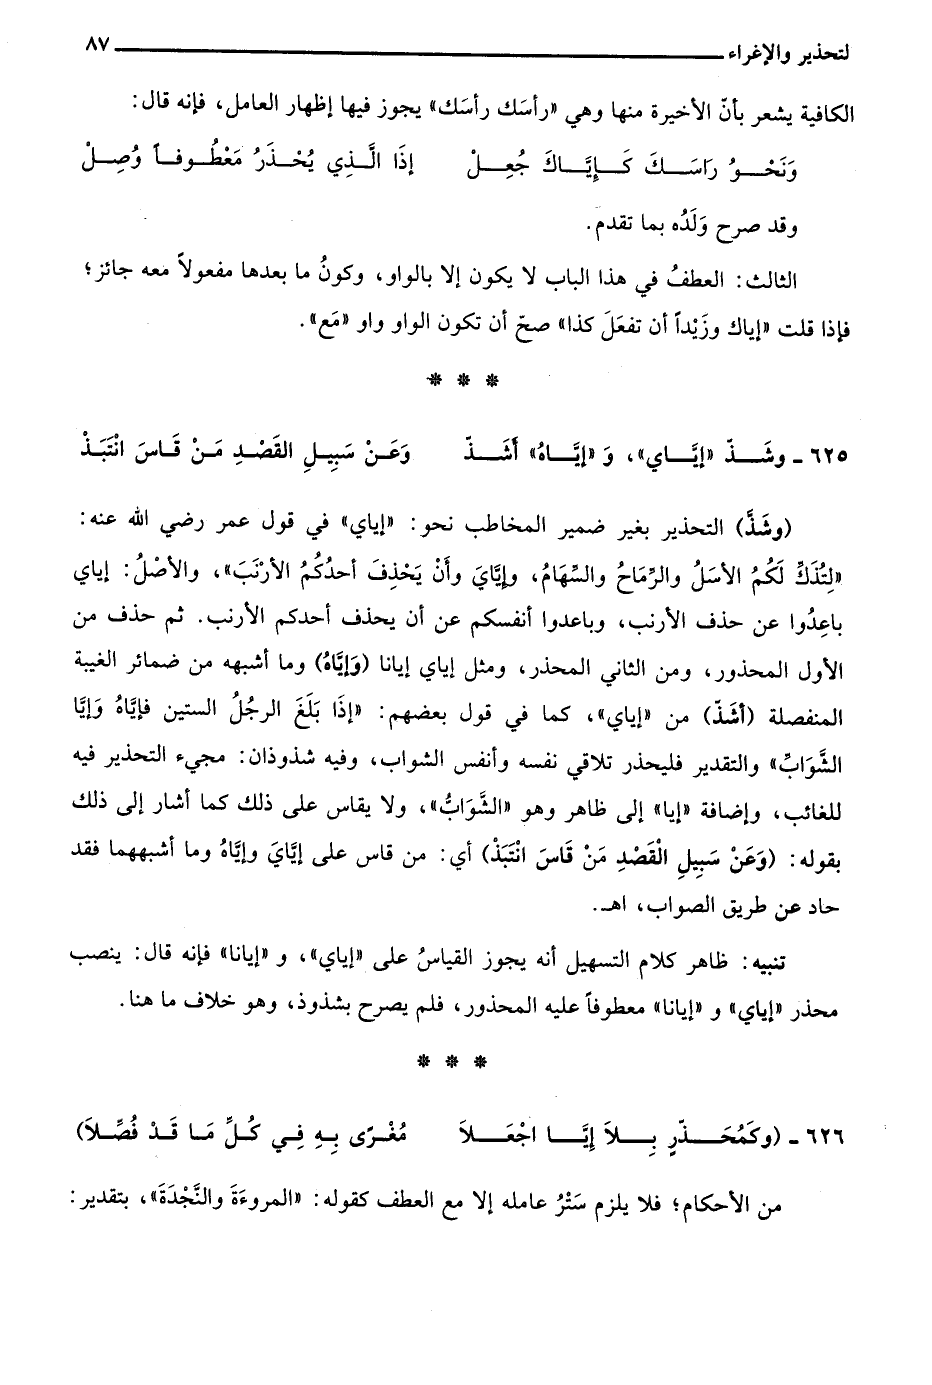 لتحذير والإغراء ـــــــــ ٨٧
الكافية يشعر بأنّ الأخيرة منها وهي «رأسَك رأسَك» يجوز فيها إظهار العامل، فإنه قال:
وَنَحْـوُ رَاسَـكَ كَـإِيَّـاكَ جُعِـلْ إذَا الَّـذِي يُحْـذَرُ مَعْطُـوفـاً وُصِـلْ
وقد صرح وَلَدُه بما تقدم.
الثالث: العطفُ في هذا الباب لا يكون إلا بالواو، وكونُ ما بعدها مفعولاً معه جائز؛
فإذا قلت «إياك وزَيْداً أن تفعَلَ كذا» صحّ أن تكون الواو واو «مَع».
* * *
٦٢٥ ـ وشَـذّ «إيَّـاي»، وَ «إيَّـاهُ» أَشَـذّ وَعَـنْ سَبِيلِ القَصْـدِ مَـنْ قَـاسَ انْتَبَـذْ
(وشَذَّ) التحذير بغير ضمير المخاطب نحو: «إياي» في قول عمر رضي الله عنه:
«لِتُذَكِّ لَكُمُ الأسَلُ والرِّمَاحُ والسِّهَامُ، وإيَّايَ وأَنْ يَحْذِفَ أحدُكُمُ الأرْنَبَ»، والأصْلُ: إياي
باعِدُوا عن حذف الأرنب، وباعدوا أنفسكم عن أن يحذف أحدكم الأرنب. ثم حذف من
الأول المحذور، ومن الثاني المحذر، ومثل إياي إيانا (وَإيَّاهُ) وما أشبهه من ضمائر الغيبة
المنفصلة (أشَذّ) من «إياي»، كما في قول بعضهم: «إذَا بَلَغَ الرجُلُ الستين فإيَّاهُ وَإيَّا
الشَّوَابِّ» والتقدير فليحذر تلاقي نفسه وأنفس الشواب، وفيه شذوذان: مجيء التحذير فيه
للغائب، وإضافة «إيا» إلى ظاهر وهو «الشَّوَابُّ»، ولا يقاس على ذلك كما أشار إلى ذلك
بقوله: (وَعَنْ سَبِيلِ الْقَصْدِ مَنْ قَاسَ انْتَبَذْ) أي: من قاس على إيَّايَ وإيَّاهُ وما أشبههما فقد
حاد عن طريق الصواب، اهـ.
تنبيه: ظاهر كلام التسهيل أنه يجوز القياسُ على «إياي»، و «إيانا» فإنه قال: ينصب
محذر «إياي» و «إيانا» معطوفاً عليه المحذور، فلم يصرح بشذوذ، وهو خلاف ما هنا.
* * *
٦٢٦ ـ (وكَمُحَـذّرٍ بِـلاَ إيَّـا اجْعَـلاَ مُغْـرًى بِـهِ فِـي كُـلِّ مَـا قَـدْ فُصِّـلاَ)
من الأحكام؛ فلا يلزم سَتْرُ عامله إلا مع العطف كقوله: «المروءَةَ والنَّجْدَةَ»، بتقدير: